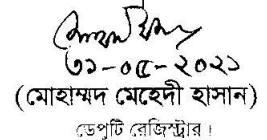 ৩১-০৫-২০২১
(মোহাম্মদ মেহেদী হাসান)
ডেপুটি রেজিস্ট্রার।